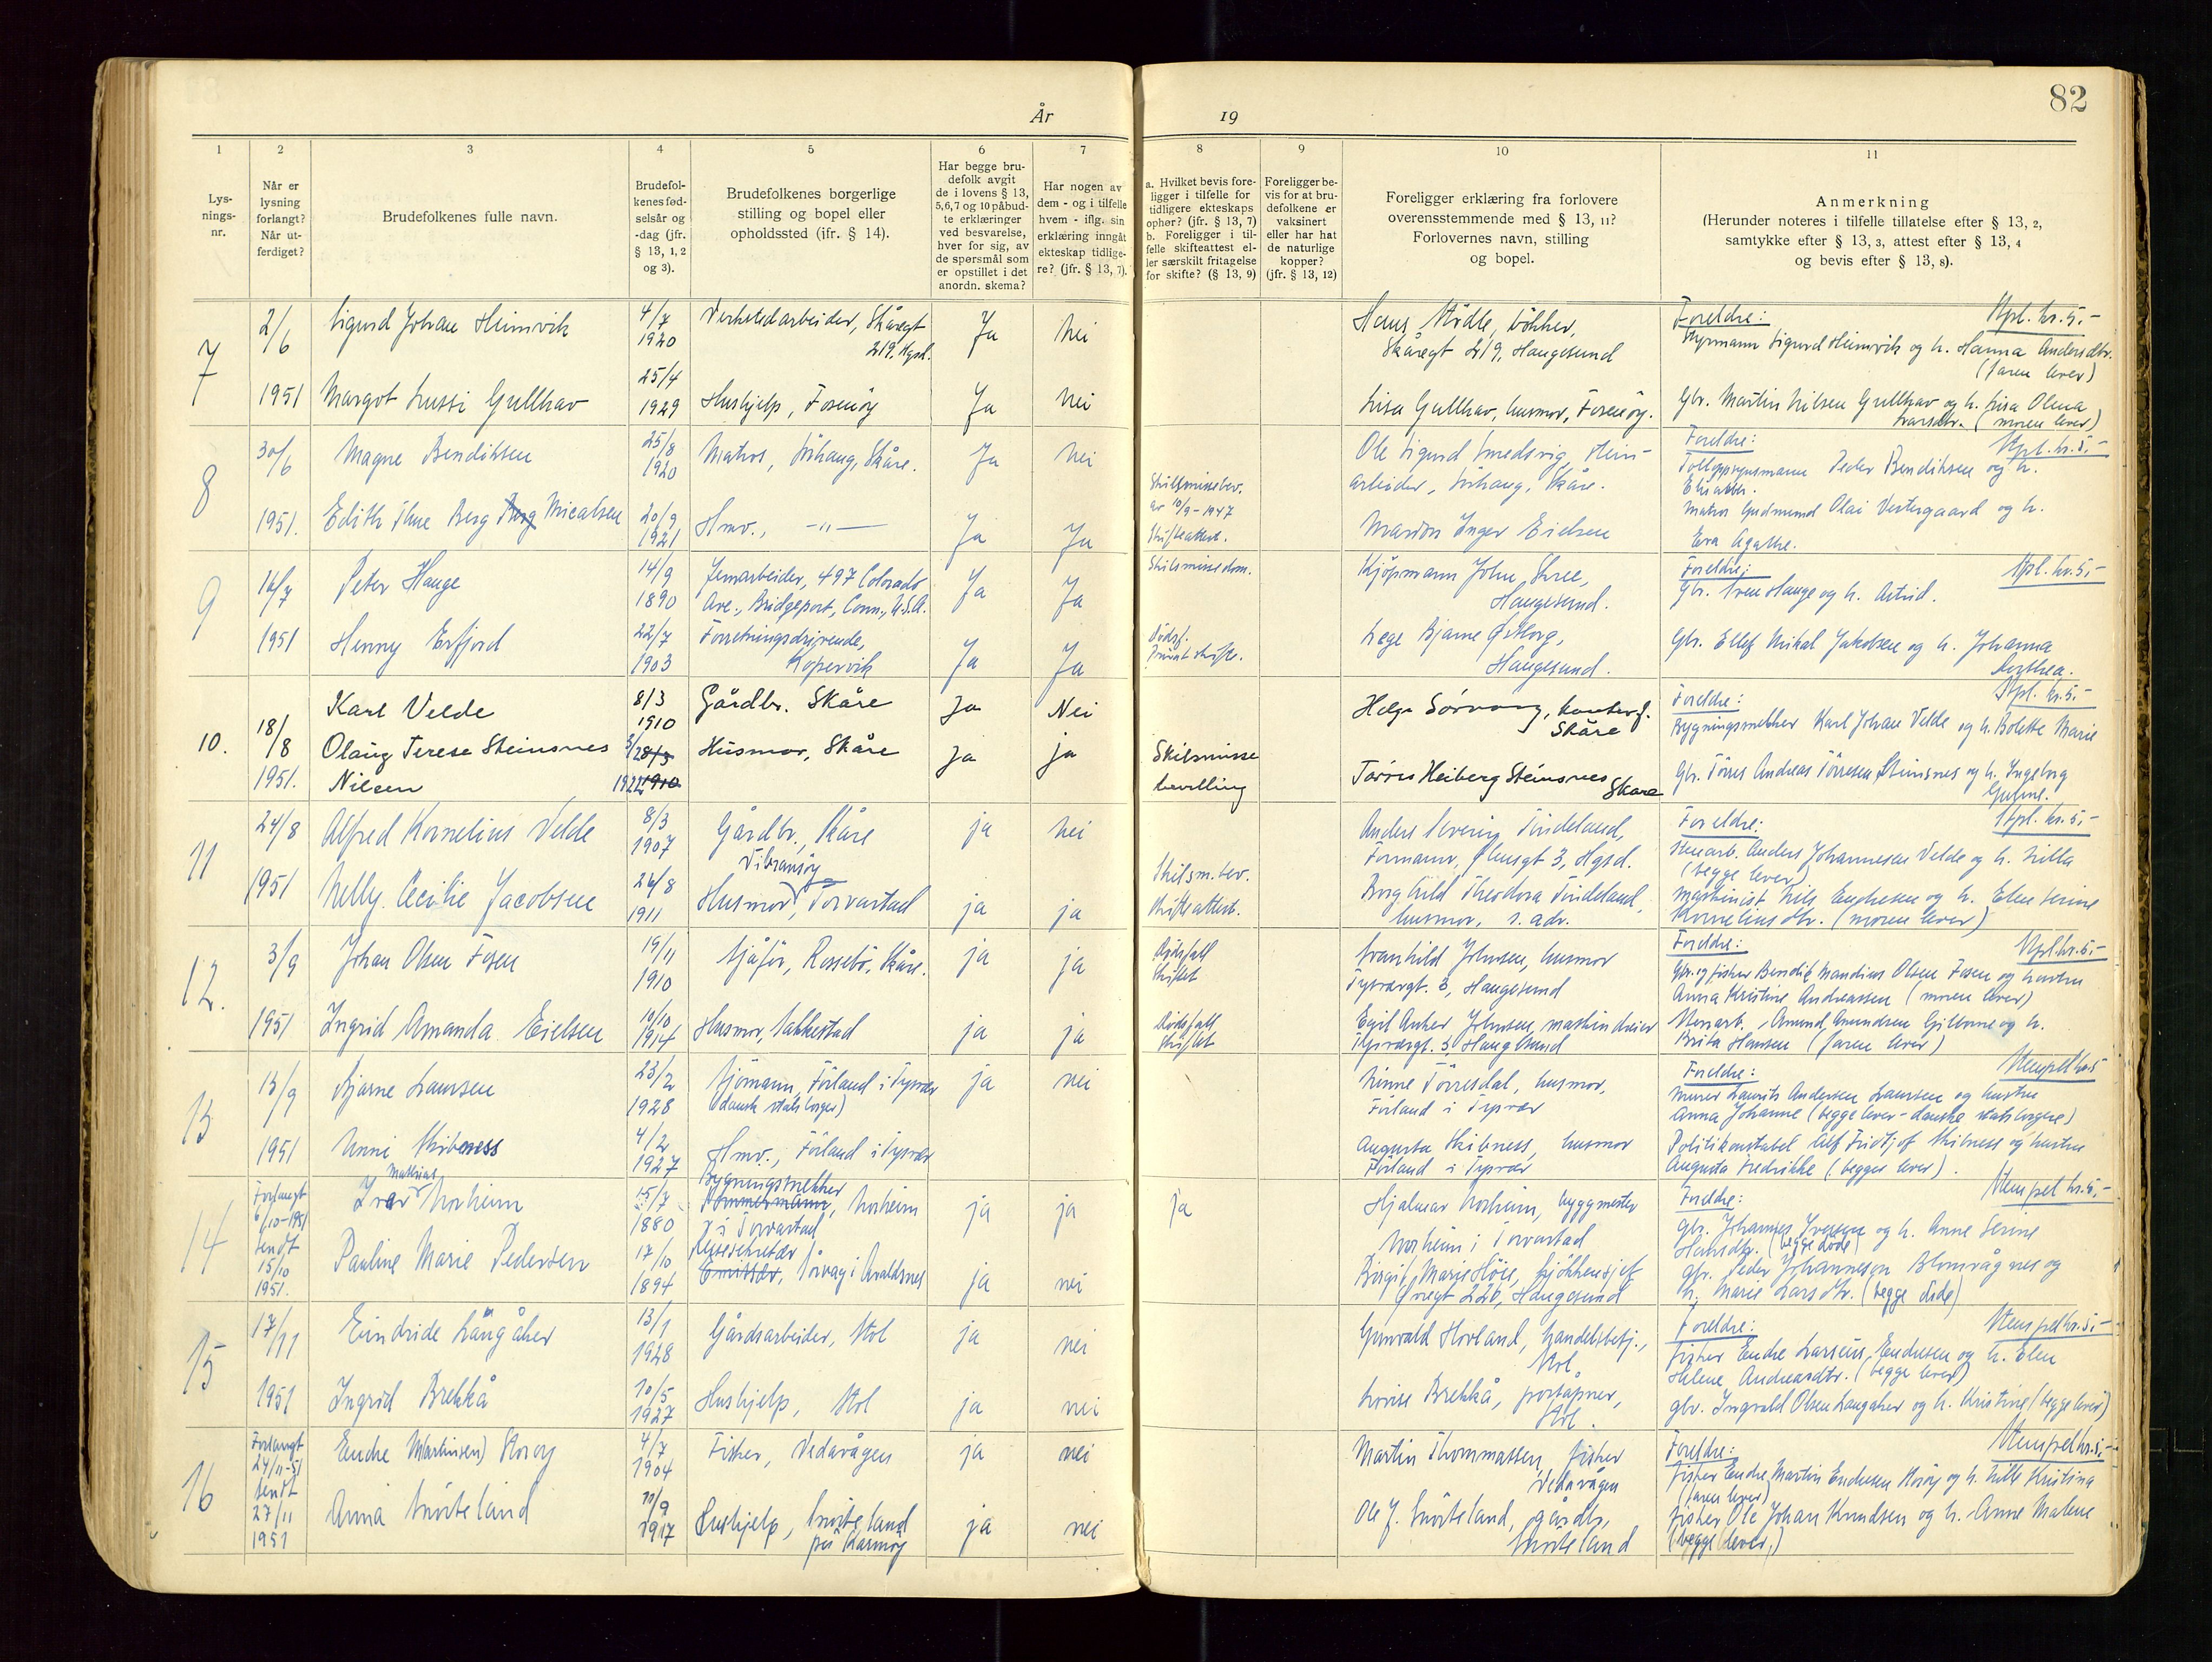 82
År
19
1
2
3
4
5
6
7
8
9
10
11
Lys-
nings-
nr.
Når er
lysning
forlangt?
Når ut-
ferdiget?
Brudefolkenes fulle navn.
Brudefol-
kenes fød-
selsår og
-dag (jfr.
§ 13, 1, 2
og 3).
Brudefolkenes borgerlige
stilling og bopel eller
opholdssted (ifr. § 14).
Har begge bru-
defolk avgit
de i lovens § 13,
5,6,7 og 10 påbud-
te erklæringer
ved besvarelse,
hver for sig, av
de spørsmål som
er opstillet i det
anordn. skema?
Har nogen av
dem - og i tilfelle
hvem - iflg. sin
erklæring inngåt
ekteskap tidlige-
re? (jfr. § 13, 7).
a. Hvilket bevis fore-
ligger i tilfelle for
tidligere ekteskaps
ophør? (jfr. § 13, 7)
b. Foreligger i til-
felle skifteattest el-
ler særskilt fritagelse
for skifte? (§ 13, 9)
Foreligger be-
vis for at bru-
defolkene er
vaksinert
eller har hat
de naturlige
kopper?
(jfr. § 13, 12)
Foreligger erklæring fra forlovere
overensstemmende med § 13, 11?
Forlovernes navn, stilling
og bopel.
Anmerkning
(Herunder noteres i tilfelle tillatelse efter § 13, 2,
samtykke efter § 13, 3, attest efter § 13, 4
og bevis efter § 13, 8).
7
2/6
1951
Sigurd Johan Heimvik
4/7
1920
Verkstedarbeider, Skåregt
219, Hgsd.
Ja
Nei
Hans Mödle, bökker,
Skåregt 219, Haugesund
Foreldre:
Stpl. kr. 5.-
Styrmann Sigurd Heimvik og h. Hanna Andersdtr.
(faren lever)
Margot Lussi Gullhav
25/4
1929
Hushjelp, Fosenøy
Ja
Nei
Lisa Gullhav, husmor, Fosenøy.
Gbr. Martin Nilsen Gullhav og h. Lisa Olena
Larsdtr. (moren lever)
8
30/6
1951.
Magne Bendiksen
25/8
1920
Matros, Sörhaug, Skåre.
Ja
Nei
Ole Sigurd Smedsvig, stein-
arbeider, Sörhaug, Skåre.
Foreldre:
Stpl. kr. 5.-
Tolloppsynsmann Peder Bendiksen og h.
Elisabeth.
Edith Thue Berg Micalsen
20/9
1921
Hmv., -"-
Ja
Ja
Skilsmissebev.
av 10/9 - 1947
Skifteattest.
Marion Inger Eielsen
Matros Gudmund Olai Vestergaard og h.
Eva Agathe.
9
16/7
1951
Peter Hauge
14/9
1890
Jernarbeider, 497 Colorado
Ave., Bridgeport, Conn., U.S.A.
Ja
Ja
Skilsmissedom.
Kjöpmann John Stree,
Haugesund.
Foreldre:
Stpl. kr. 5.-
Gbr. Sven Hauge og h. Astrid.
Henny Erfjord
22/7
1903
Forretningsdrivende,
Kopervik
Ja
Ja
Dødsf.
Privat skifte.
Læge Bjarne Østborg,
Haugesund.
Gbr. Ellef Mikal Jakobsen og h. Johanna
Dorthea.
10.
18/8
1951.
Karl Velde
8/3
1910
Gårdbr. Skåre
Ja
Nei
Helge Sørvaag, kontorf.
Skåre
Foreldre:
Stpl. kr. 5.-
Bygningssnekker Karl Johan Velde og h. Bolette Marie
Olaug Terese Steinsnes
Nilsen
1922
1910
Husmor, Skåre
Ja
ja
Skilsmisse
bevilling
Torres Heiberg Steinsnes
Skåre
Gbr. Törres Andreas Törresen Steinsnes og h. Ingeborg
11
24/8
1951
Alfred Kornelius Velde
8/3
1907
Gårdbr., Skåre
ja
nei
Anders Severin Tindeland,
Formann, Ølensgt 3, Hgsd.
Foreldre:
Stpl. kr. 5.-
Stenarb. Anders Johannesen Velde og h. Nilla
(begge lever)
Nelly Cecilie Jacobsen
26/8
1911
Vibransøy
Husmor, Torvastad
ja
ja
Skilsm. bev.
Skifteattest.
Borghild Theodora Tindeland,
husmor, s. adr.
Maskinist Nils Endresen og h. Elen Serine
Korneliusdtr. (moren lever)
12.
3/9
1951
Johan Olsen Fosen
19/11
1910
Sjåfør, Rossebö, Skåre.
ja
ja
Dödsfall
Skiftet
Svanhild Johnsen, husmor
Tysværgt. 3, Haugesund
Foreldre:
Stpl. kr. 5.-
Gbr. og fisker Bendik Mandius Olsen Fosen og hustru
Anna Kristine Andreassen (moren lever)
Ingrid Amanda Eielsen
10/10
1914
Husmor, Sakkestad
ja
ja
Dödsfall
Skiftet
Egil Anker Johnsen, maskindreier
Tysværgt. 3, Haugesund
Stenarb., Amund Amundsen Gilbrone og h.
Brita Hansen (faren lever)
13
13/9
1951
Bjarne Laursen
23/2
1928
Sjömann, Förland i Tysvær
(dansk statsborger)
ja
nei
Minne Törresdal, husmor,
Förland i Tysvær
Foreldre:
Stempel kr 5
Murer Laurits Andersen Laursen og hustru
Anna Johanne (begge lever - danske statsborgere)
Unni Skibeness
4/2
1927
Hmv., Förland i Tysvær
Augusta Skibeness, husmor
Förland i Tysvær
Politikonstabel Alf Fridtjof Skibness og hustru
Augusta Fredrikke (begge lever).
14
Forlangt
6/10-1951
Sendt
15/10
1951.
Mathias
Ivar Norheim
15/7
1880
Bygningssnekker
Tömmermann, Norheim
i Torvastad
ja
ja
Ja
Hjalmar Norheim, byggmester
Norheim i Torvastad
Foreldre:
Stempel kr. 5,-
gbr. Johannes Iversen og h. Anne Serine
Hansdtr. (begge döde)
Pauline Marie Pedersen
17/10
1894
Reisesekretær
Emissær, Sörvåg i Avaldsnes
ja
nei
Birgit Marie Höie, kjökkensjef
Øvregt 226, Haugesund
gbr. Peder Johannesen Blomvågnes og
h. Marie Larsdtr. (begge döde)
15
17/11
1951
Eindride Langåker
13/1
1928
Gårdsarbeider, Stol
ja
nei
Gunvald Hovland, handelsbetj.,
Stol.
Foreldre:
Stempel kr. 5.-
fisker Endre Larsens Endresen og h. Elen
Helene Andreasdtr. (begge lever)
Ingrid Brekkå
10/5
1927
Hushjelp, Stol
ja
nei
Lovise Brekkå, poståpner,
Stol.
gbr. Ingvald Olsen Langaker og h. Kristine (begge lever)
16
Forlangt
24/11-51
Sendt
27/11
1951
Endre (Martinsen) Storøy
4/7
1904
Fisker, Vedavågen
ja
nei
Martin Thommassen, fisker
Vedavågen
Foreldre:
Stempel kr. 5,-
fisker Endre Martin Endresen Storøy og h. Nille Kristina
(faren lever)
Anna Snörteland
11/9
1917
Hushjelp, Snörteland
på Karmøy
ja
nei
Ole J. Snörteland, gårdbr,
Snörteland
fisker Ole Johan Knudsen og h. Anne Malene
(begge lever.)